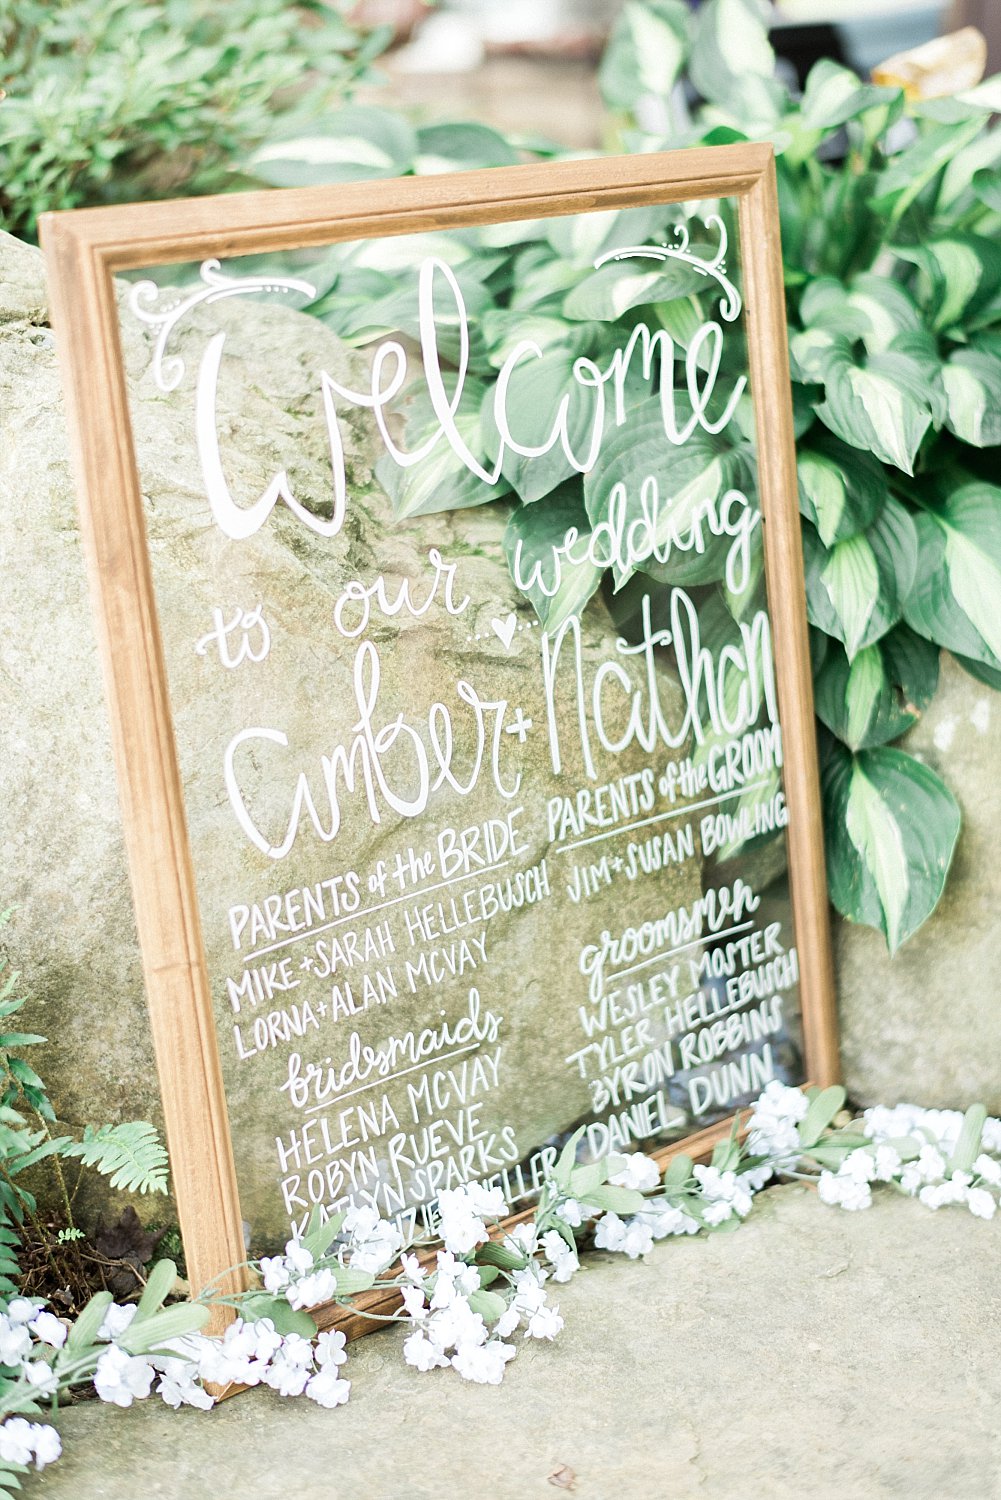 Welcome
to our wedding
Amber + Nathan
PARENTS of the BRIDE
MIKE + SARAH HELLEBUSCH
LORNA + ALAN MCVAY
bridesmaids
HELENA MCVAY
ROBYN RUEVE
KATLYN SPARKS
PARENTS of the GROOM
JIM + SUSAN BOWLING
groomsmen
WESLEY MOSTER
TYLER HELLEBUSCH
BYRON ROBBINS
DANIEL DUNN